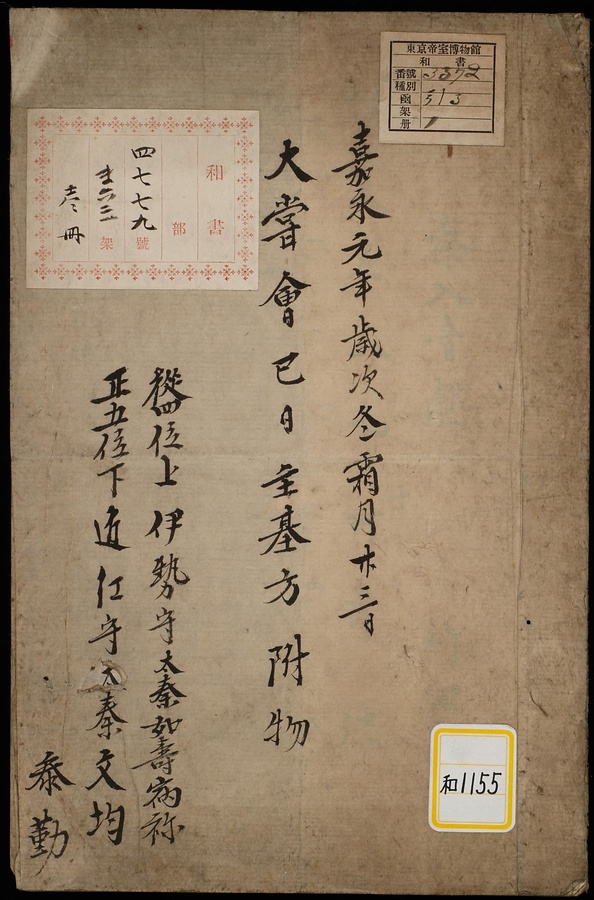 東京帝室博物館
和書
番號 3372
種別
函 513
架
冊 1
嘉永元年歳次冬霜月廿三日
大嘗會巳日主基方 附物
從四位上伊勢守太秦如壽病祢
正五位下近江守太秦文均
泰勤
和書
部
四七七九號
架
壱冊
和1155